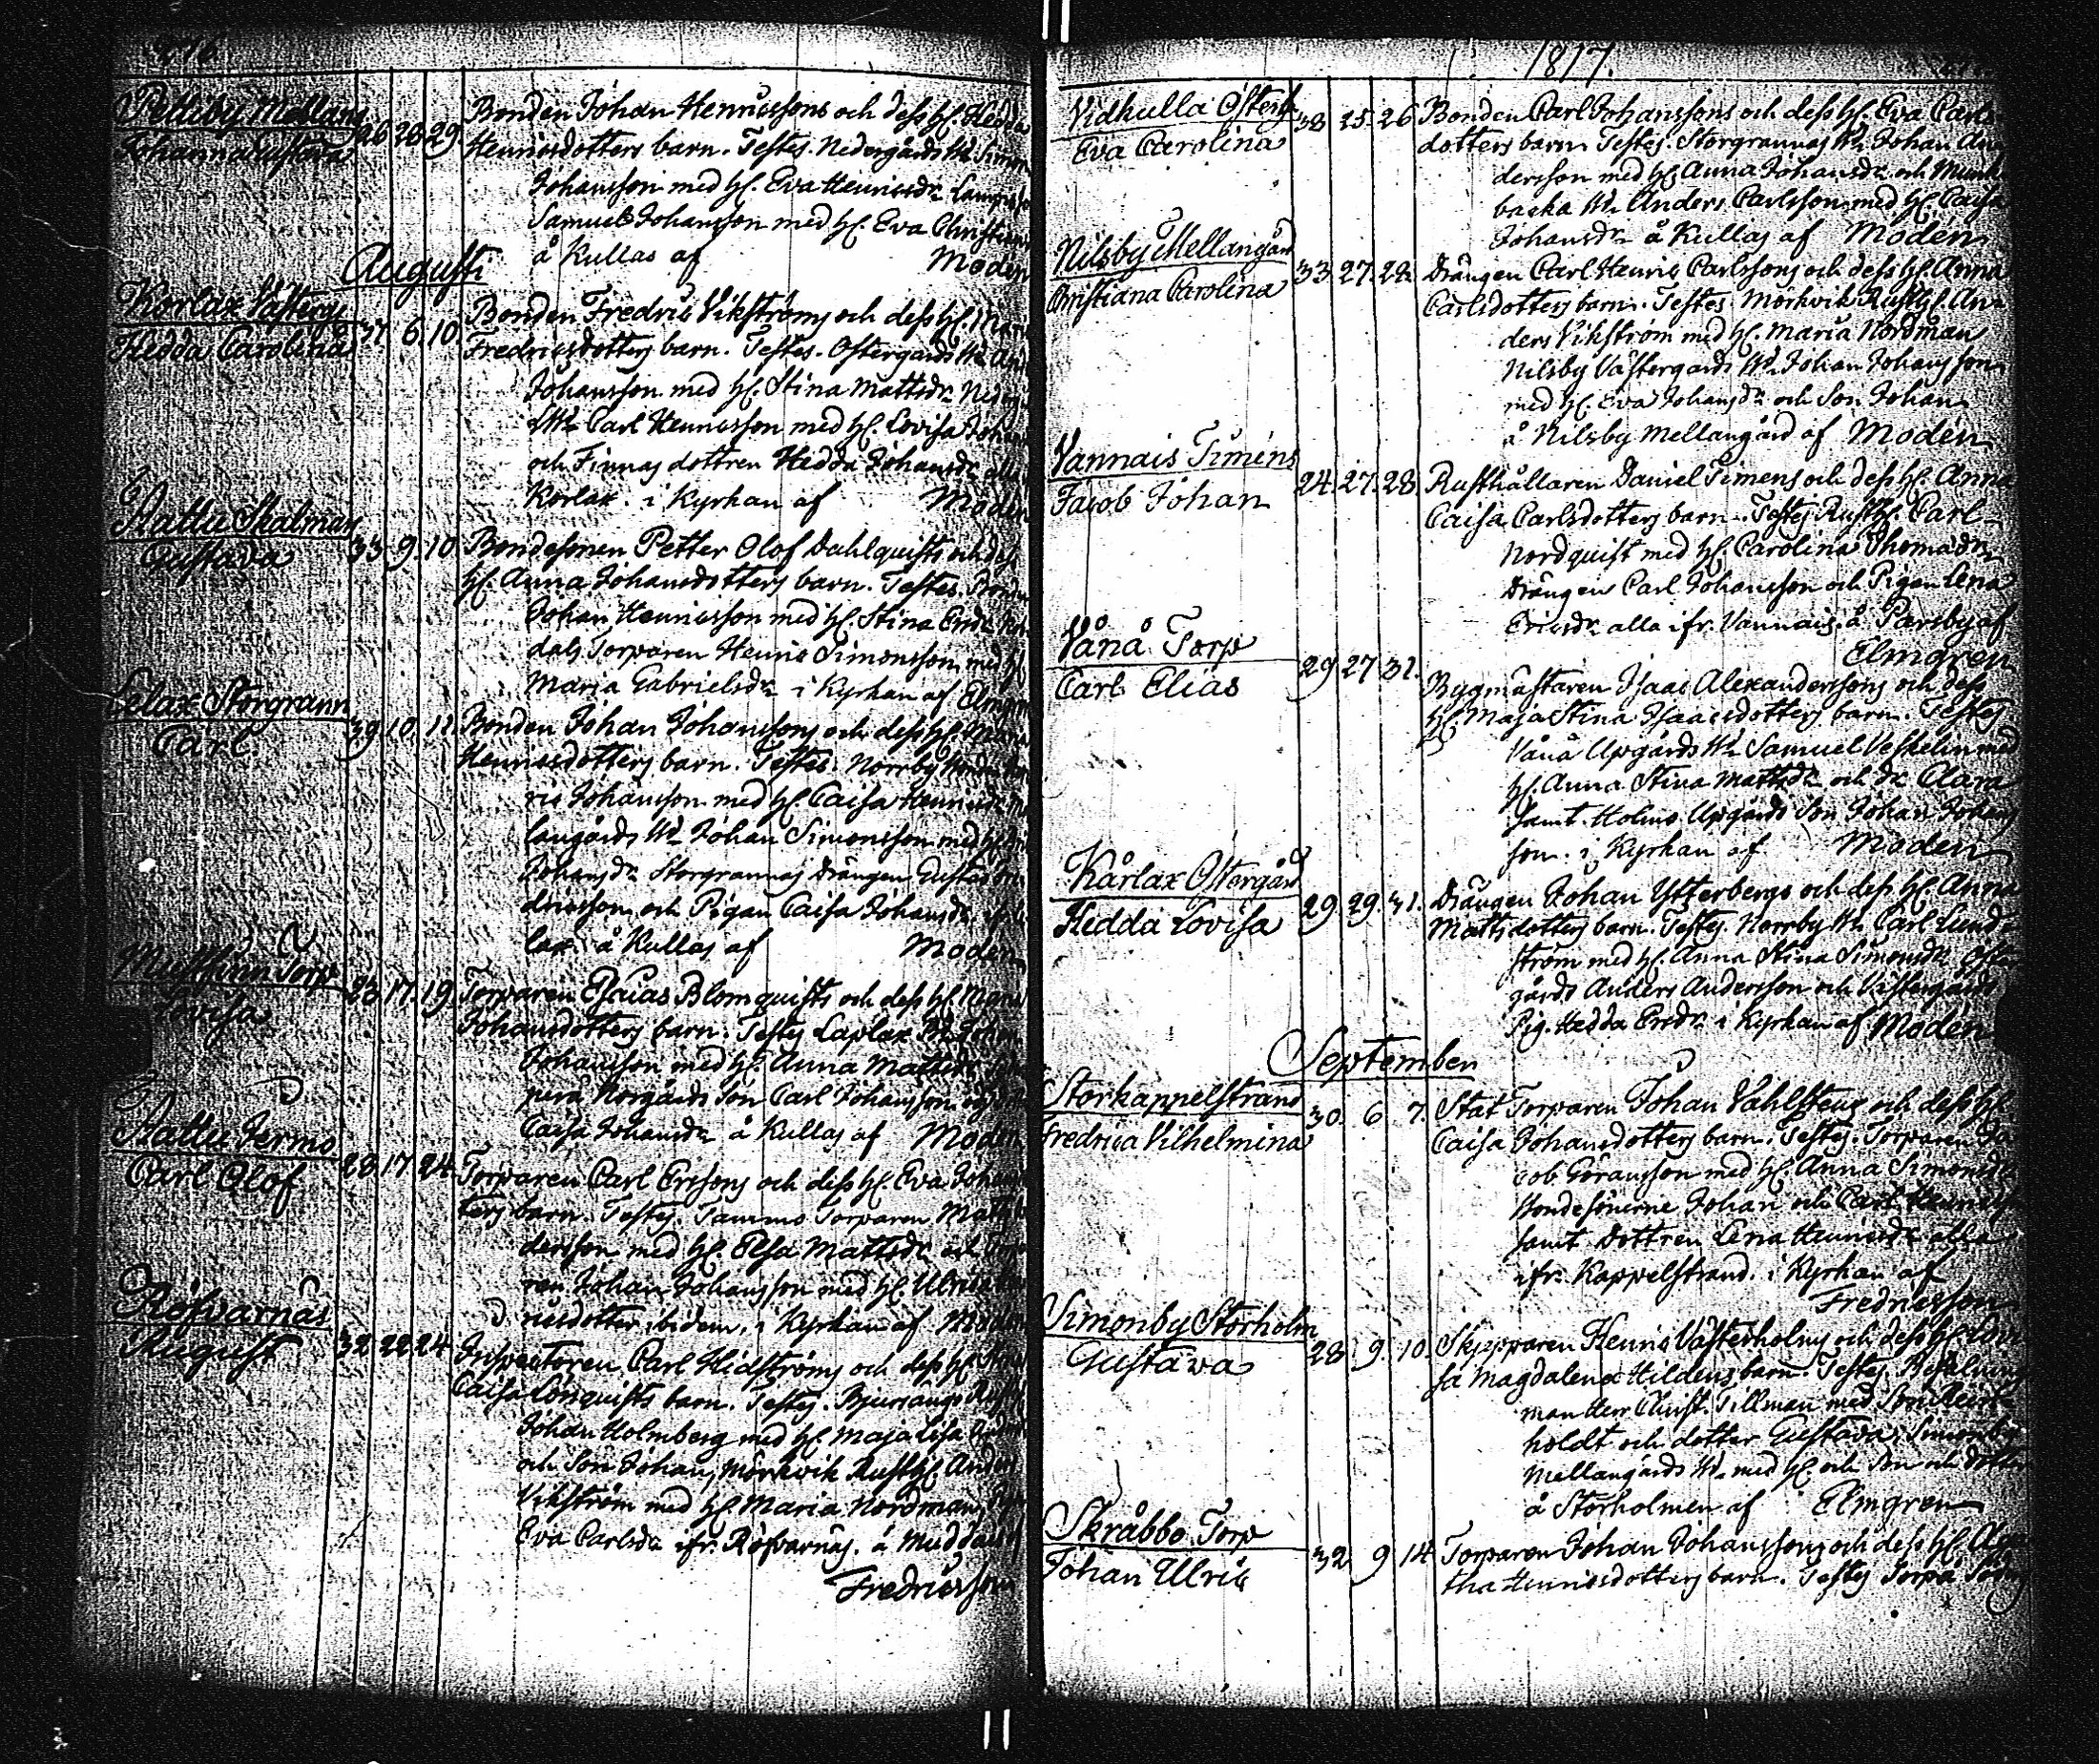 Petteby Mellang
Johanna Gustava
26 28 29
Bonden Johan Henricssons och dess H. Hedda
Henricsdotters barn. Testes. Nedergårds Wd Simon
Johansson med H. Eva Henricsdr
Samuel Johansson med H. Eva Christian
å Kullas af Modén
Augusti
Korlax Västerg
Hedda Carolina
6. 10.
Bonden Fredric Vikströms och dess H. Maria
Fredricsdotters barn. Testes. Östergårds Wd And
Johansson med H. Stina Mattsdr Nederg
Wd Carl Henricsson med H. Lovisa Johans
och Finnas dottren Hedda Johansdr alla
Korlax. i Kyrkan af Modén
Rattu Skalmars
Gustava
33 9. 10
Bondesonen Petter Olof Dahlquists och dess
H. Anna Johansdotters barn. Testes.
Johan Henricsson med H. Stina Ericdr
dals Torparen Henric Simonsson med H.
Maria Gabrielsdr i Kyrkan af Elmgren
Lelax Storgrann
Carl.
39 10. 11.
Bonden Johan Johanssons och dess H. Maria
Henricsdotters barn. Testes. Norrby
ric Johansson med H. Caisa Henricsdr
langårds Wd Johan Simonsson med H.
Johansdr Storgrannas Drängen Gustaf
dricsson och Pigan Caisa Johansdr
lax å Kullas af Modén
Mustfinn Torp
Lovisa
23 17. 19.
Torparen Esaias Blomquists och dess H.
Johansdotters barn. Testes Laplax Wd Johan
Johansson med H. Anna Mattsdr
perå Norgårds Son Carl Johansson och
Caisa Johansdr å Kullas af Modén
Rattu Jermo
Carl Olof
28 17. 24.
Torparen Carl Ersons och dess H. Eva Johansdot
ters barn. Testes. Tammo Torparen Matts
dersson med H. Elsa Mattsdr och Torpa
ren Johan Johansson med H. Ulrica
ricsdotter ibidem, i Kyrkan af Modén
Röfvarnäs
August
32 22 24
Inspectoren Carl Hidströms och dess H.
Caisa Lönquists barn. Testes. Bjursängs Rusth.
Johan Holmberg med H. Maja Lisa
och Son Johan, Mörkvik Rusth. Anders
Vikström med H. Maria Nordman,
Eva Carlsdr ifr. Röfvarnäs. å Muddais af
Fredricsson
1817.
Vidkulla Österg
Eva Carolina
38 25. 26
Bonden Carl Johanssons och dess H. Eva Carls
dotters barn Testes. Storgrannas Wd Johan An
dersson med H. Anna Johansdr och Munk
backa Wd Anders Carlsson med H. Caisa
Johansdr å Kullas af Modén
Nilsby Mellangård
Christiana Carolina
33. 27. 28.
Drängen Carl Henric Carlssons och dess H. Anna
Carlsdotters barn. Testes Mörkvik Rusth. An
ders Vikström med H. Maria Nordman
Nilsby Västergårds Wd Johan Johansson
med H. Eva Johansdr och Son Johan
å Nilsby Mellangård af Modén
Vannais Timéns
Jacob Johan
24. 27. 28.
Rusthållaren Daniel Timens och dess H. Anna
Caisa Carlsdotters barn. Testes Rusth. Carl
Nordquist med H. Carolina Thomædr
Drängen Carl Johansson och Pigan Lena
Ericsdr alla ifr. Vannais. å Pärsby af
Elmgren
Vånå Torp
Carl Elias
29 27 31.
Bygmästaren Isaac Alexanderssons och dess
H. Maja Stina Isaacsdotters barn. Testes
Vånå Upgårds Wd Samuel Veskelin med
H. Anna Stina Mattsdr och Dr Clara
samt Holms Upgårds Son Johan Johans
son. i Kyrkan af Modén
Kårlax Östergård
Hedda Lovisa
29 29. 31.
Drängen Johan Ytterbergs och dess H. Anna
Mattsdotters barn. Testes. Norrby Wd Carl Lund
ström med H. Anna Stina Simonsdr Öster
gårds Anders Andersson och Västergårds
Pig. Hedda Ericdr i Kyrkan af Modén
September
Storkappelstrand
Fredrica Vilhelmina
30. 6 7.
Stat Torparen Johan Vahlstens och dess H.
Caisa Johansdotters barn. Testes. Torparen Ja
cob Göransson med H. Anna Simonsdr
Bondesönerne Johan och Carl Henricss
samt Dottren Lena Henricsdr alla
ifr. Kappelstrand. i Kyrkan af
Fredricsson
Simonby Storholm
Gustava
28 9. 10.
Skepparen Henric Västerholms och dess H. Lovi
sa Magdalena Hildens barn. Testes. Befalnings
man Herr Christ. Tillman med Son Rein
holdt och dotter Gustava, Simonby
Mellangårds Wd med H. och Son och dotter
å Storholmen af Elmgren
Skråbbo Torp
Johan Ulric
32 9 14
Torparen Johan Johanssons och dess H. Aga
tha Henricsdotters barn. Testes Torpa